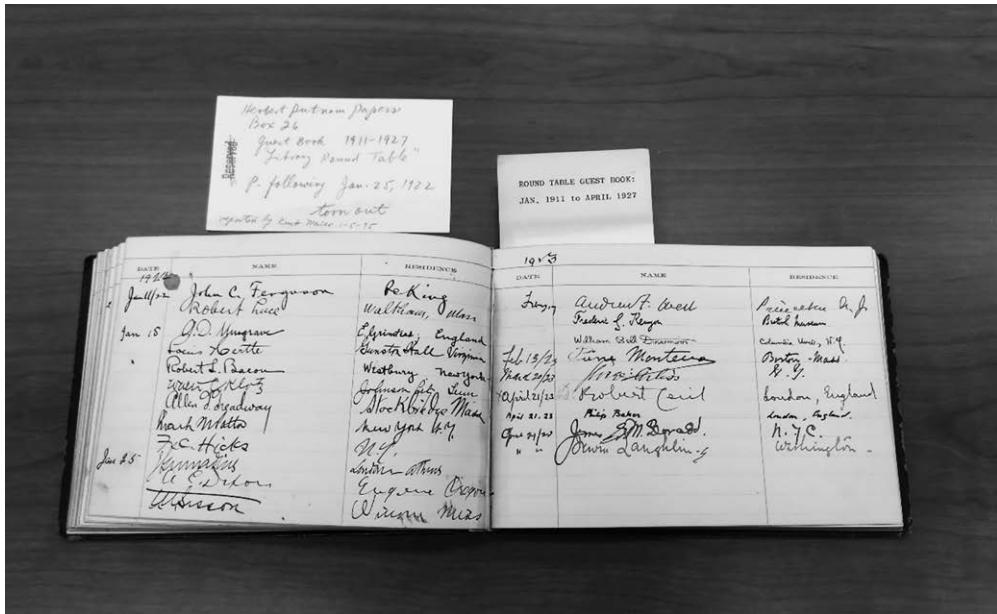 Herbert Putnam Papers
Box 26
Guest Book 1911-1927
"Library Round Table"
P. following Jan. 25, 1922
torn out
reported by 1-5-95
ROUND TABLE GUEST BOOK:
JAN. 1911 to APRIL 1927
DATE NAME RESIDENCE
Jan 11/22 John C. Ferguson Peking
Robert Luce Waltham, Mass
Jan 15 England
Gunston Hall Virginia
Robert L. Bacon Westbury New York
Johnson City, Tenn
Allen T. Treadway Stockbridge Mass
New York N.Y.
F.C. Hicks N.Y.
Jan 25 London Athens
Dixon Eugene Oregon
Sisson Winona Miss
1923
DATE NAME RESIDENCE
Andrew F. West Princeton N.J.
Frederic G. Kenyon British Museum
William Bell Dinsmoor Columbia Univ., N.Y.
Feb 13/23 Boston Mass.
March 20/23 N.Y.
April 21/23 Robert Cecil London, England
April 21. 23 Philip Baker London, England.
James G. McDonald. N.Y.C.
" " Irwin Laughlin